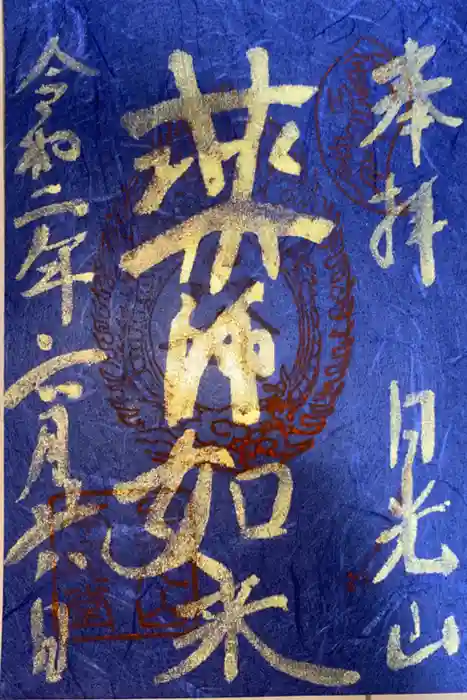 奉拝 日光山
薬師如来
令和二年・六月 日